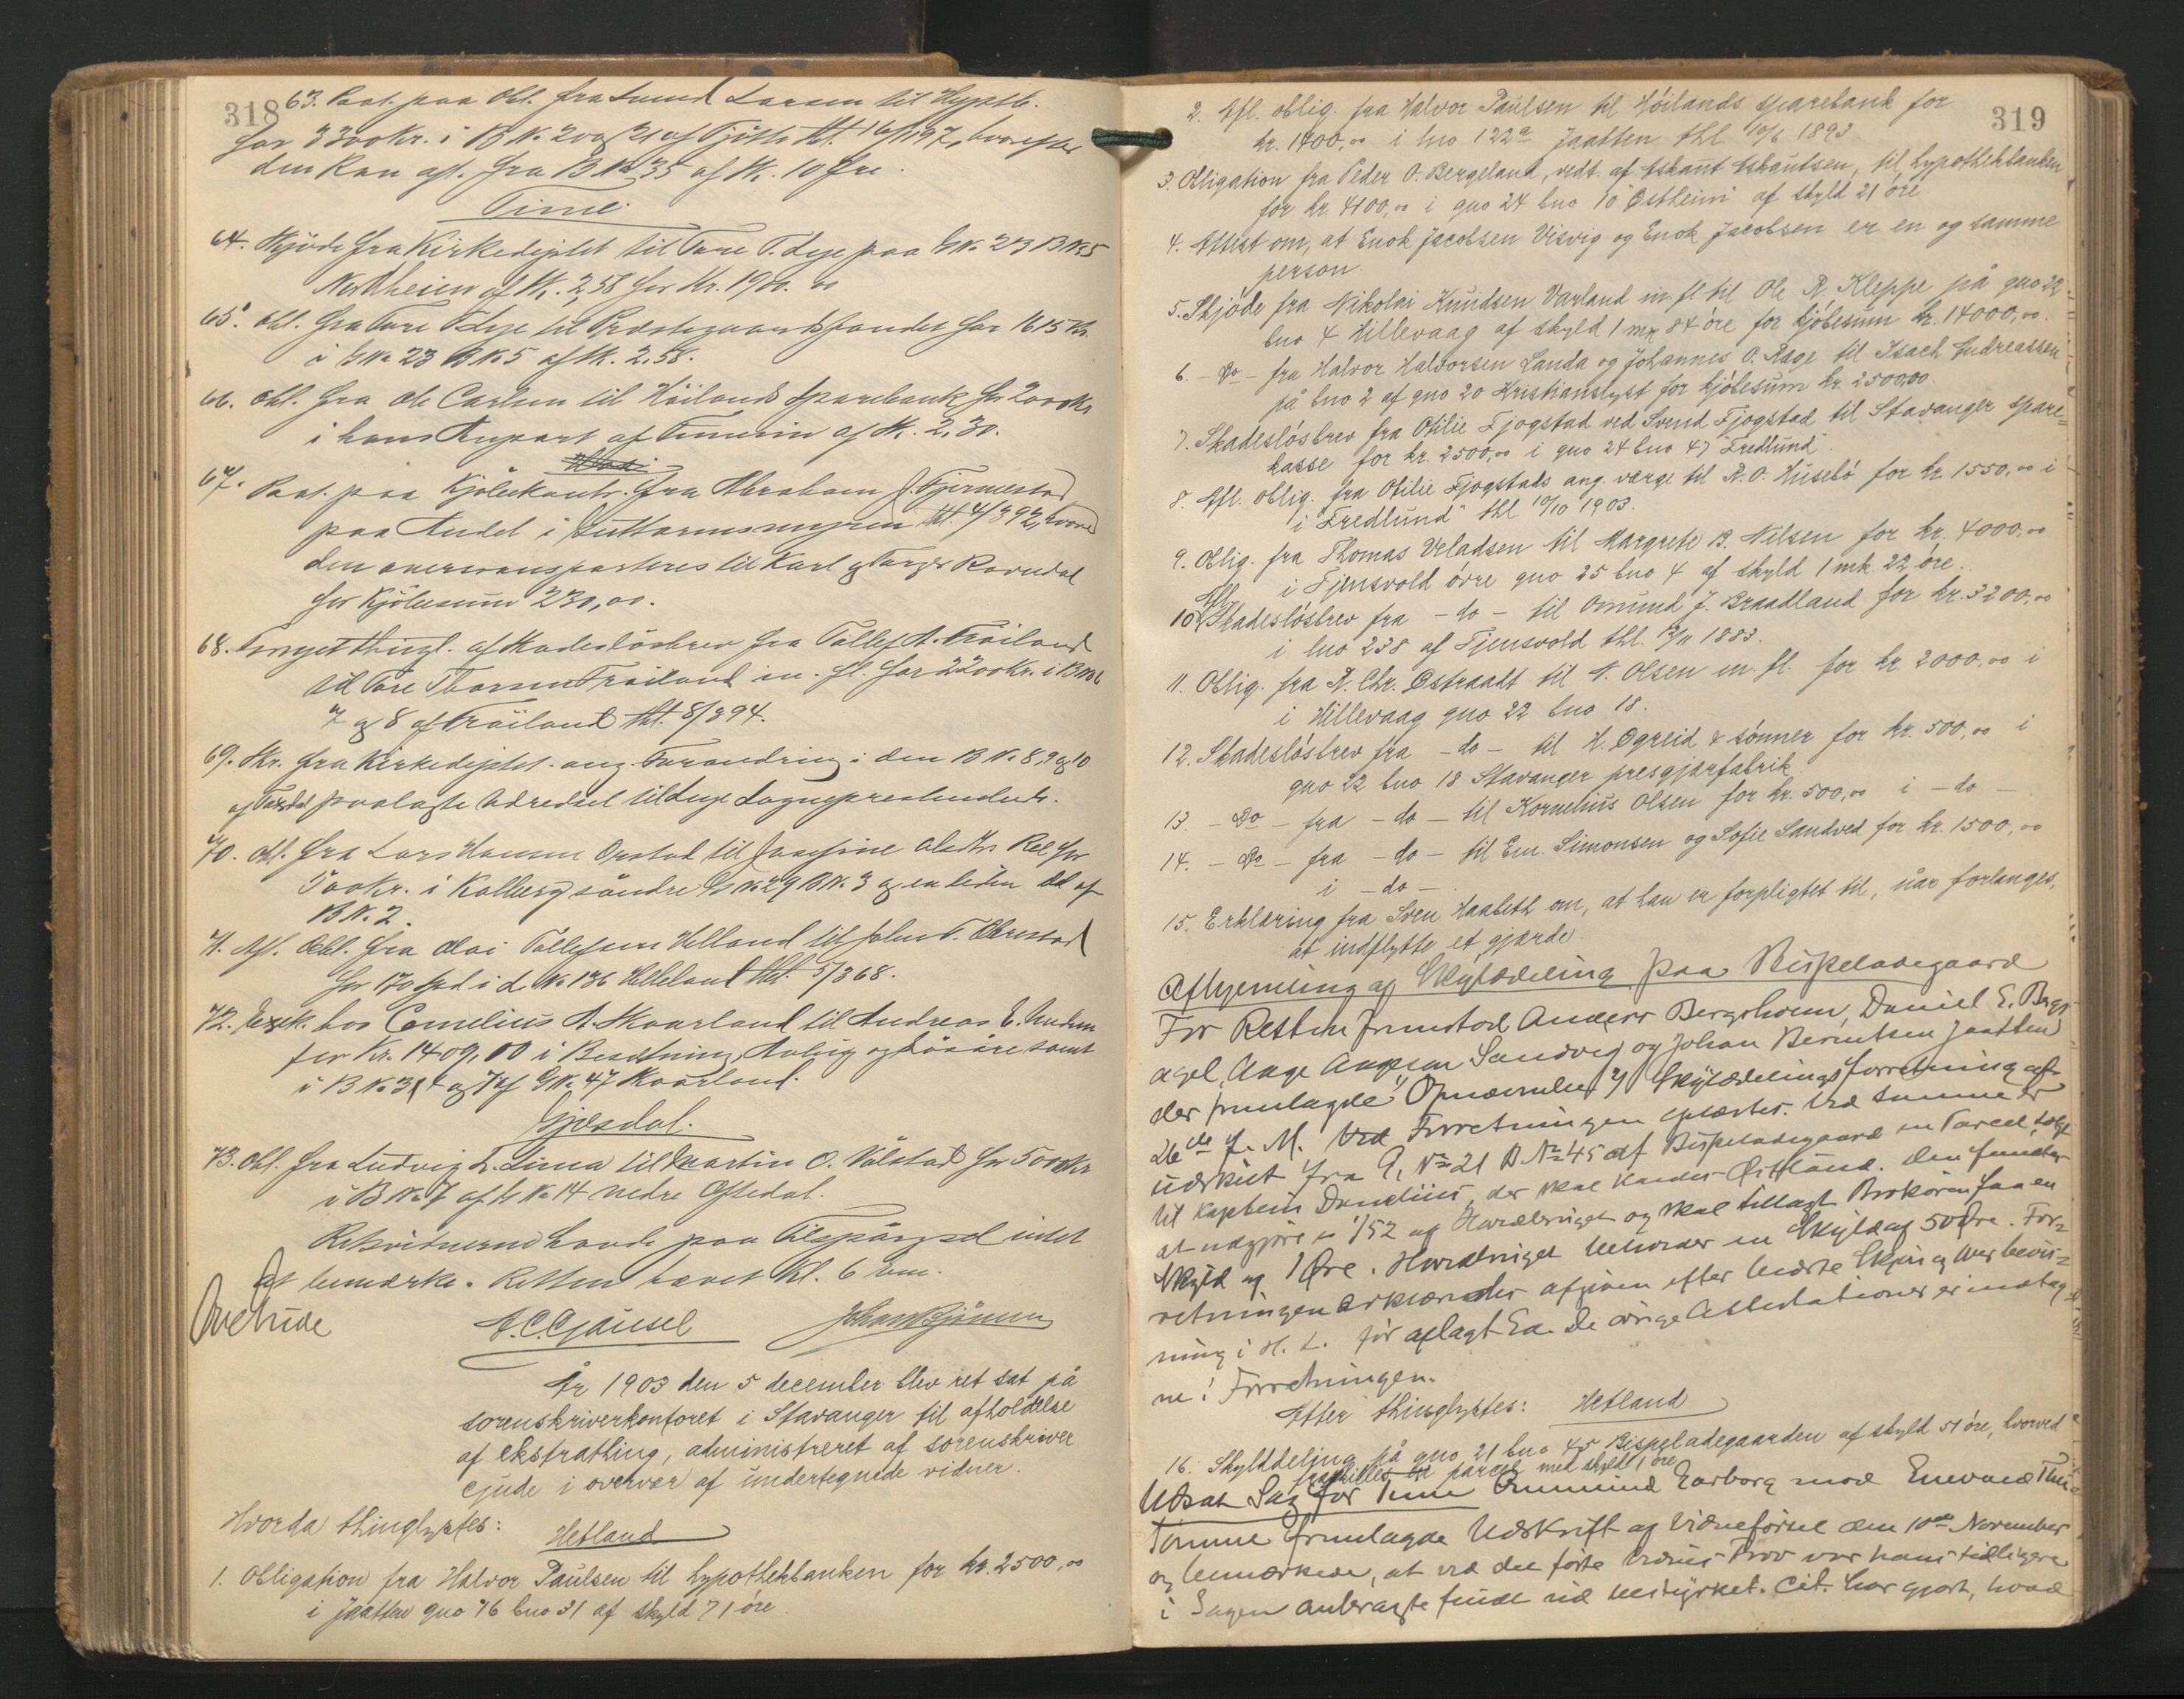 318
63. Paat. paa Obl. fra Svend Larsen til Hypoth.
for 3300 Kr. i B No 20 og 21 af Tjötta thl. 16/1197, hvorefter
den kan afl. fra B No 35 af Sk. 10 Øre.
Time
64. Skjøde fra Kirkedeptet til Tore T. Lye paa G No 23 B No 5
Nordheim af Sk. 2,58 for Kr. 1900.00
65. Obl. fra Tore T Lye til Præstegaardsfondet for 1615 Kr.
i G No 23 B No 5 af Sk. 2.58.
66. Obl. fra Ole Carlsen til Höilands Sparebank for 200 Kr
i hans Anpart af af Sk. 2,30.
67. Paat. paa Kjøbekontr. fra Abraham J. Fjermestad
paa Andel i thl. 4/892, hvorved
den overtransporteres til Karl og Torger Ravndal
for Kjøbesum 230,00.
68. Fornyet thingl. af Skadesløsbrev fra Tollef A. Fröiland
til Tore Thorsen Fröiland m. fl. for 2200 Kr. i B No 6
7 og 8 af Fröiland thl. 8/894.
69. Skr. fra Kirkedeptet. ang. Forandring i den B No 8, 9 og 10
af paalagte Udredsel til Lye Sogneprestembede.
70. Obl. fra Lars Hansen Orstad til Josefine Olsdtr Ree for
500 Kr. i Kalberg söndre G No 29 B No 3 og en liden del af
B No 2.
71. Afl. Obl. fra Oloi Tollefsen Helland til John T.
for 170 Spd i L No 136 Helleland thl. 5/368.
72. Exek. hos Cornelius A. Skaarland til Andreas E.
for Kr. 1409,00 i Besætning, Avling og Løsøre samt
i B No 3, 4 og 7 af G No 47 Skaarland.
Gjesdal.
73. Obl. fra Ludvig L. Lima til Martin O. Vølstad for 500 Kr
i B No 7 af G No 14 nedre Oftedal.
Retsvidnerne havde paa Tilspørgsel intet
at bemærke. Retten hævet Kl. 6 em.
Gjetrude
A. C. Gausel
År 1903 den 5 december blev ret sat på
sorenskriverkontoret i Stavanger til afholdelse
af ekstrathing, administreret af sorenskriver
Gjude i overvær af undertegnede vidner.
Hvorda thinglystes:
Hetland
1. Obligation fra Halvor Paulsen til hypothekbanken for kr. 2500,00
i Jaatten gno 16 bno 31 af skyld 71 øre
319
2. Afl. oblig. fra Halvor Paulsen til Höilands sparebank for
kr. 1400,00 i lno 122a Jaatten thl 10/6 1893
3. Obligation fra Peder O. Bergeland, vedt. af Askaut Askautsen, til hypothekbanken
for kr. 4100,00 i gno 24 bno 10 "Østheim" af skyld 21 øre.
4. Attest om, at Enok Jacobsen Visvig og Enok Jacobsen er en og samme
person.
5. Skjöde fra Nikolai Knudsen Varland m. fl til Ole R. Kleppe på gno 22
bno 4 Hillevaag af skyld 1 mrk 84 öre for kjöbesum kr. 14000,00.
6. – Do – fra Halvor Halvorsen Landa og Johannes O. Rage til Isach Andreassen
på bno 2 af gno 20 Kristianslyst for kjöbesum kr. 2500,00.
7. Skadeslösbrev fra Otilie Fjogstad ved Svend Fjogstad til Stavanger spare=
kasse for kr. 2500,00 i gno 24 bno 47 "Fredlund".
8. Afl. oblig. fra Otilie Fjogstads ang. værge til R. O. Husebö for kr. 1550,00 i
i "Fredlund" thl 10/10 1903.
9. Oblig. fra Thomas Veladsen til Margrete B. Nilsen for kr. 4000,00
i Tjensvold övre gno 25 bno 4 af skyld 1 mk. 22 öre.
10. Afl. Skadeslösbrev fra – do – til Omund J. Braadland for kr. 3200,00
i lno 238 af Tjensvold thl. 12/11 1883.
11. Oblig. fra R. Chr. Østraadt til N. Olsen m. fl. for kr. 2000,00 i
i Hillevaag gno 22 bno 18.
12. Skadeslösbrev fra – do – til H. Ogreid & sönner for kr. 500,00 i
gno 22 bno 18 Stavanger presgjærfabrik
13. – Do – fra – do – til Kornelius Olsen for kr. 500,00 i – do –
14. – Do – fra – do – til Em. Simonsen og Sofie Sandved for kr. 1500,00
i – do –
15. Erklæring fra Sven Haabeth om, at han er forpligtet til, når forlanges,
at indflytte et gjærde
Afhjemling af Skylddeling paa Bispeladegaard
For Retten fremstod Anders Bergsholm, Daniel E. Bergs-
agel, Aage Aagesen Sandvig og Johan Berentsen Jaatten
der fremlagde: Opnævnelse 2) Skylddelingsforretning af
26de f. M. Ved Forretningen oplæstes. Ved samme er
udskilt fra G. No 21 B No 45 af Bispeladegaard en Parcel, solgt
til Kaptein Danelius, der skal kaldes Østlund. Den fundes
at udgjøre 1/52 af Hovedbruget og skal tillagt Brøkøren faa en
Skyld af 1 Øre. Hovedbruget beholder en Skyld af 50 Øre. For=
retningen erklæredes afgiven efter bedste Skjøn og Overbevis=
ning i H. t. før aflagt Ed. De øvrige Attestationer er indtag=
ne i Forretningen.
Efter thinglystes:
Hetland
16. Skylddeling på gno 21 bno 45 Bispeladegaarden af skyld 51 öre, hvorved
fraskilles en parcel med skyld 1 öre
Udsat Sag for Time Ommund Garborg mod Enevald
Tomme fremlagde Udskrift af Vidneførsel den 10de November
og bemærkede, at ved det første Vidnes Prov var hans tidligere
i Sagen anbragte fuldt ud bestyrket. Cit. har gjort, hvad